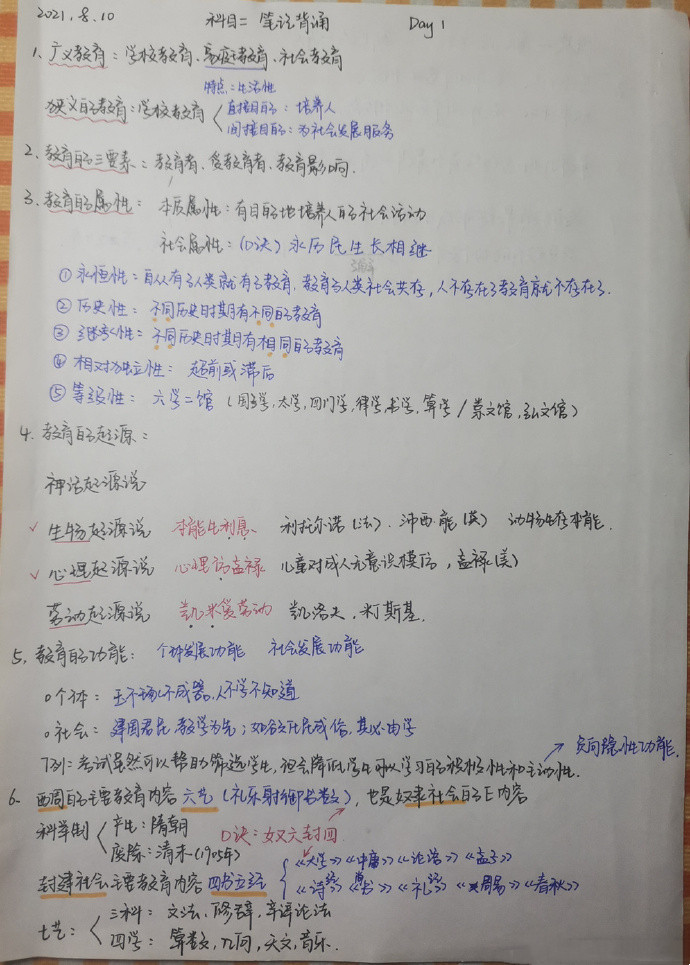 2021.8.10 科目二 笔记背诵 Day 1
1、广义教育：学校教育、家庭教育、社会教育
特点：生活性
狭义的教育：学校教育 直接目的：培养人
间接目的：为社会发展服务
2、教育的三要素：教育者、受教育者、教育影响.
3、教育的属性：本质属性：有目的地培养人的社会活动
社会属性：(口诀) 永历民生长相继
①永恒性：自从有了人类就有了教育，教育与人类社会共存，人不存在了教育就不存在了.
②历史性：不同历史时期有不同的教育
③继承性：不同历史时期有相同的教育
④相对独立性：超前或滞后
⑤等级性：六学二馆（国子学,太学,四门学,律学,书学,算学/崇文馆,弘文馆）
4、教育的起源：
神话起源说
✓生物起源说 本能生利息、 利托尔诺(法). 沛西·能(英) 动物生存本能.
✓心理起源说 心理访孟禄 儿童对成人无意识模仿，孟禄(美)
劳动起源说 凯米爱劳动 凯洛夫,米丁斯基.
5、教育的功能：个体发展功能 社会发展功能
o个体：玉不琢不成器,人不学不知道
o社会：建国君民,教学为先；如欲化民成俗,其必由学
例：考试虽然可以帮助筛选学生,但会降低学生学习的积极性和主动性. 负向隐性功能.
6、西周的主要教育内容六艺（礼乐射御书数）,也是奴隶社会的内容
科举制 产生：隋朝
废除：清末(1905年)
口诀：奴六封四
封建社会主要教育内容四书五经 《大学》《中庸》《论语》《孟子》
《诗经》《尚书》《礼记》《周易》《春秋》
七艺： 三科：文法,修辞,辩论法
四学：算数,几何,天文,音乐.